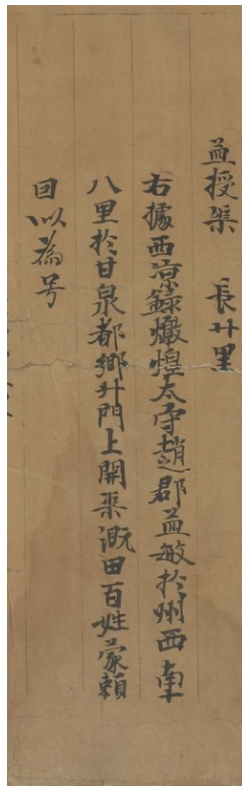 孟授渠 長廿里
右據西涼錄燉煌太守趙郡孟敏於州西南
八里於甘泉都鄉斗門上開渠溉田百姓蒙賴
因以為号